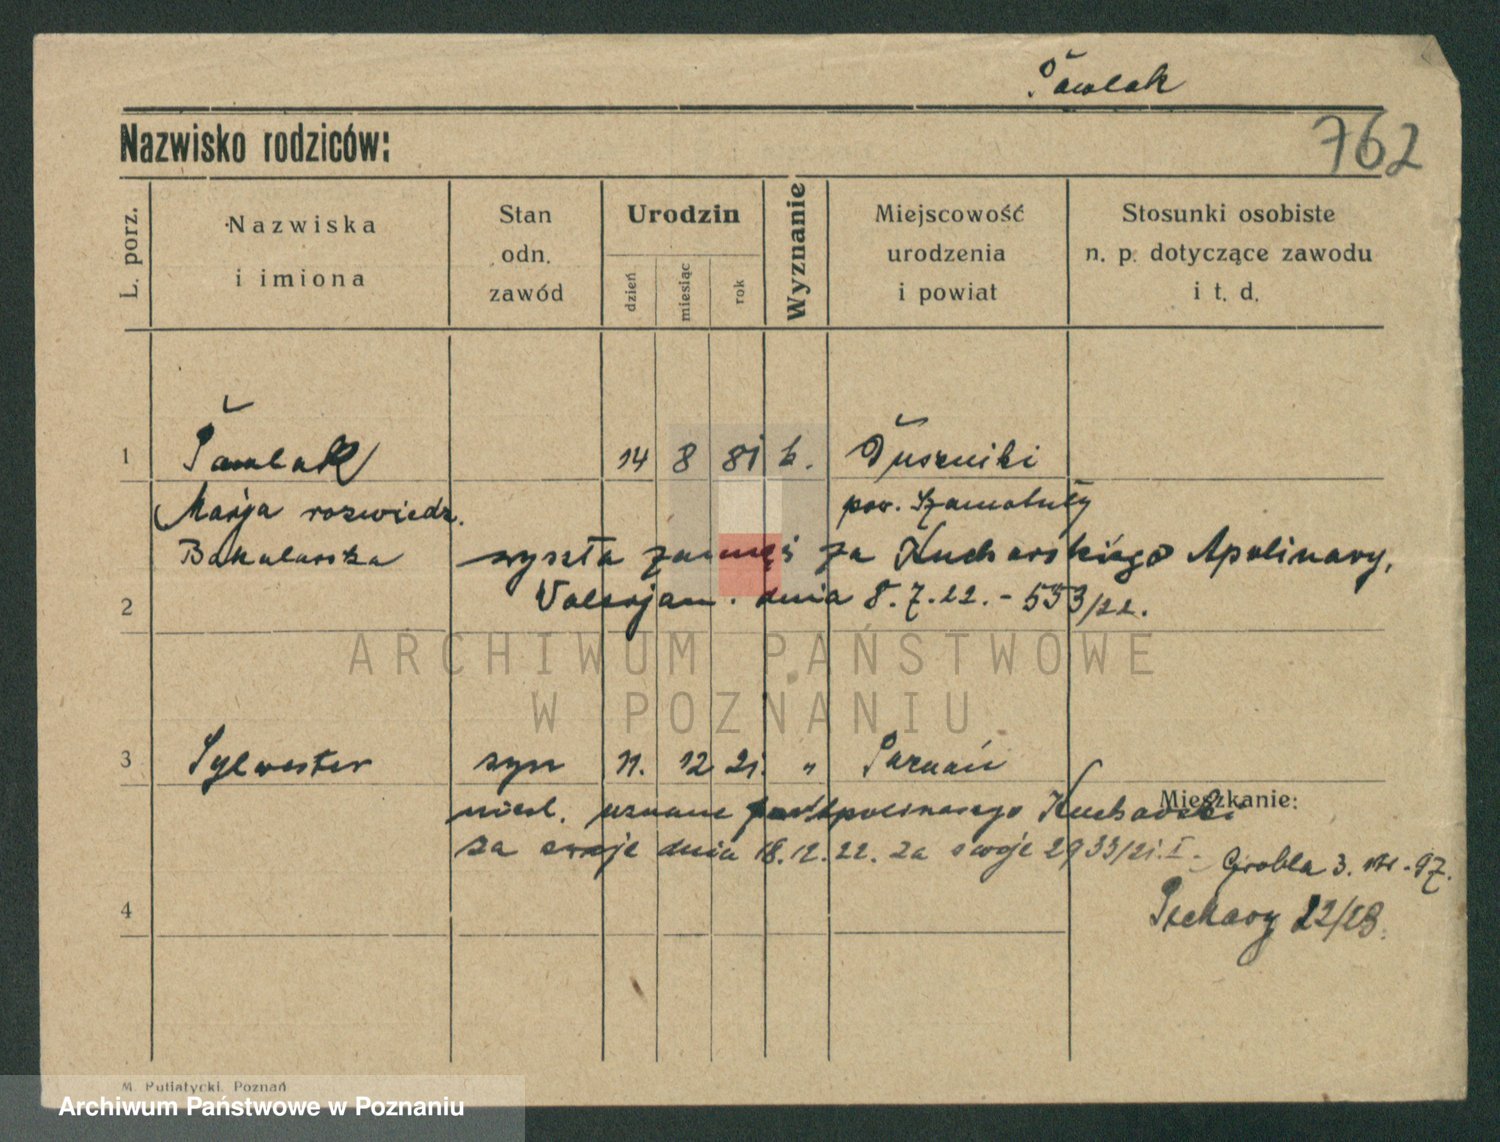 Pawlak
762
Nazwisko rodziców:
L. porz.
Nazwiska
i imiona
Stan
odn.
zawód
Urodzin
dzień
miesiąc
rok
Wyznanie
Miejscowość
urodzenia
i powiat
Stosunki osobiste
n. p. dotyczące zawodu
i t. d.
1 Pawlak 14 8 81 k. Duszniki
Marja rozwiedz. pow. Szamotuły
Bakalarska wyszła zamąż za Kucharskiego Apolinary,
2 Walerjan. dnia 8.7.22. - 553/22.
ARCHIWUM PAŃSTWOWE
W POZNANIU
3 Sylwester syn 11. 12 21. " Poznań
Mieszkanie:
nieśl. uznane Kucharski
za swoje dnia 18.12.22. za swoje 2933/21.I.
Grobla 3. 97.
4 Piekary 22/23.
M. Putiatycki, Poznań
Archiwum Państwowe w Poznaniu